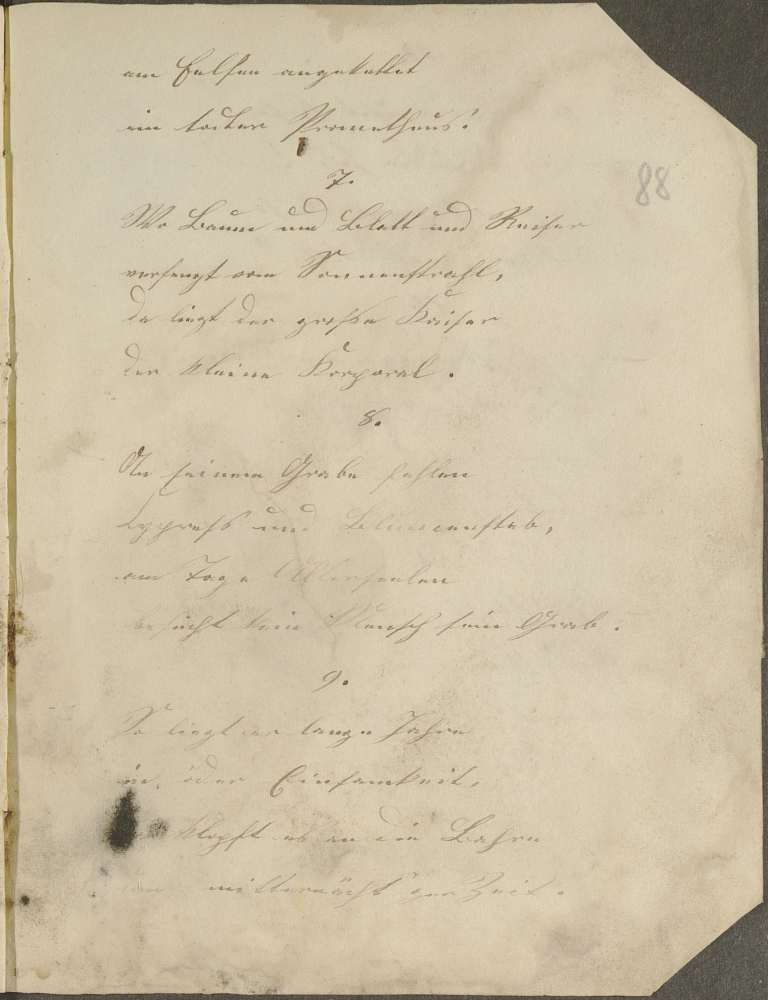 am Felsen angekettet
ein todter Prometheus!
7.
88
Wo Baum und Blatt und Reiser
versengt vom Sonnenstrahl,
da liegt der große Kaiser
der kleine Korporal.
8.
An seinem Grabe fehlen
Cypress und Blumenstab,
am Tage Allerseelen
besucht kein Mensch sein Grab.
9.
So liegt er lange Jahre
in öder Einsamkeit,
klopft es an die Bahre
mitternächt'ger Zeit.